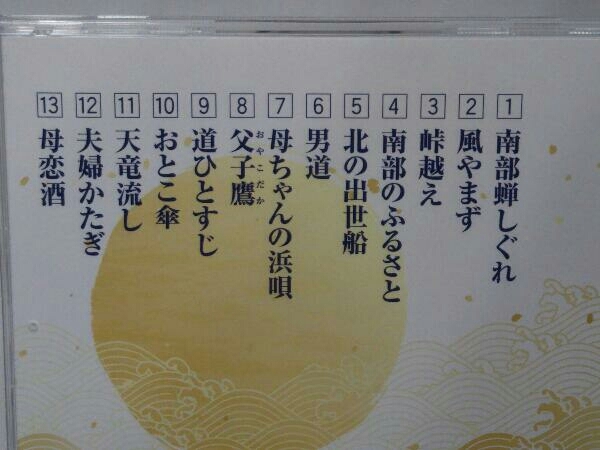 1 南部蝉しぐれ
2 風やまず
3 峠越え
4 南部のふるさと
5 北の出世船
6 男道
7 母ちゃんの浜唄
8 父子鷹
おやこだか
9 道ひとすじ
10 おとこ傘
11 天竜流し
12 夫婦かたぎ
13 母恋酒